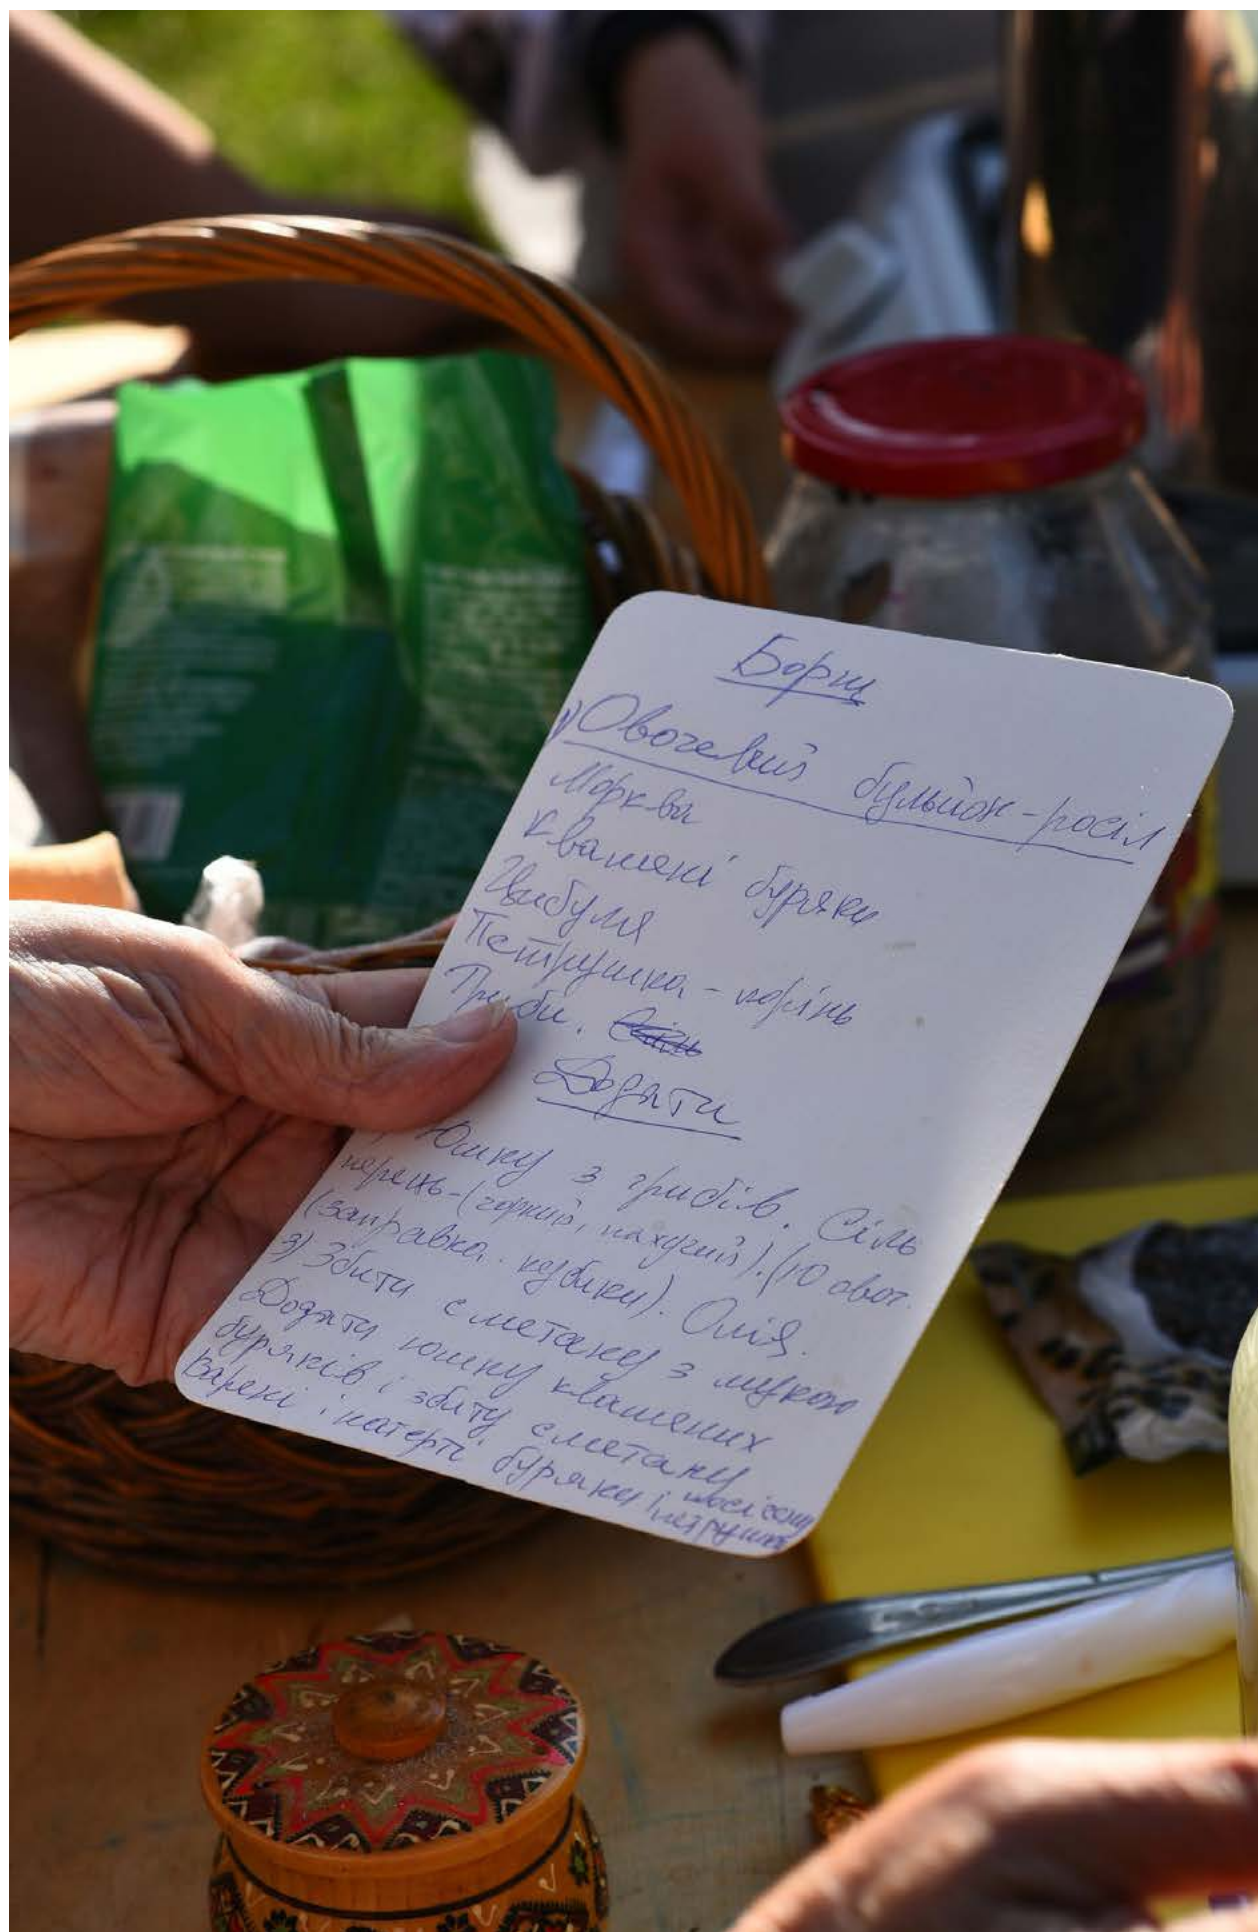 Борщ
1) Овочевий бульйон-росіл
Морква
Квашені буряки
Цибуля
Петрушка - корінь
Гриби.
Додати
Юшку з грибів. Сіль
перець-(горкий, пахучий). (10 овоч.
(заправка. кубики). Олія.
3) Збити сметану з мукою
Додати юшку квашених
буряків і збиту сметану
Варені, натерті буряки і
петрушка